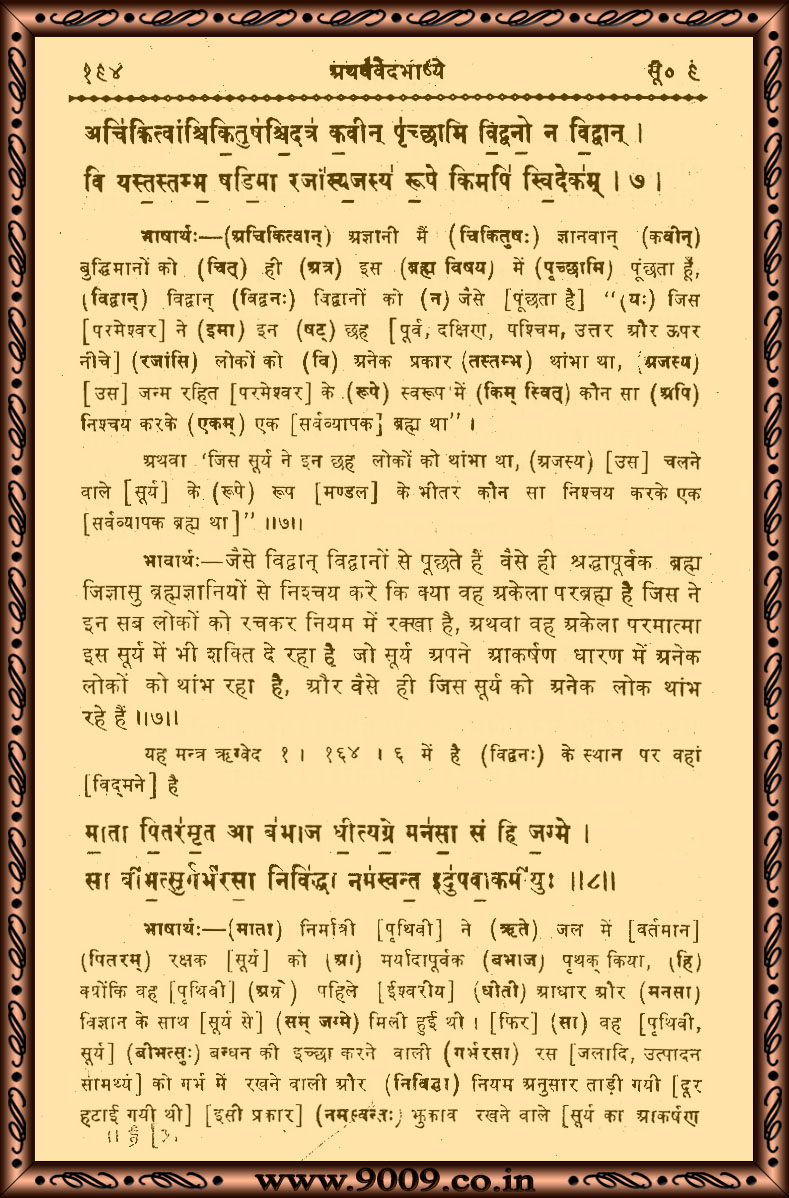 १९४ अथर्ववेदभाष्ये सू० ९
अचिकित्वांश्चिकितुषश्चिदत्र कवीन् पृच्छामि विद्वनो न विद्वान् ।
वि यस्तस्तम्भ षडिमा रजांस्यजस्य रूपे किमपि स्विदेकम् । ७ ।
भाषार्थः—(अचिकित्वान्) अज्ञानी मैं (चिकितुषः) ज्ञानवान् (कवीन्)
बुद्धिमानों को (चित्) ही (अत्र) इस (ब्रह्म विषय) में (पृच्छामि) पूंछता हूँ,
(विद्वान्) विद्वान् (विद्वनः) विद्वानों को (न) जैसे [पूंछता है] “(यः) जिस
[परमेश्वर] ने (इमा) इन (षट्) छह [पूर्व, दक्षिण, पश्चिम, उत्तर और ऊपर
नीचे] (रजांसि) लोकों को (वि) अनेक प्रकार (तस्तम्भ) थांभा था, (अजस्य)
[उस] जन्म रहित [परमेश्वर] के (रूपे) स्वरूप में (किम् स्वित्) कौन सा (अपि)
निश्चय करके (एकम्) एक [सर्वव्यापक] ब्रह्म था” ।
अथवा ‘जिस सूर्य ने इन छह लोकों को थांभा था, (अजस्य) [उस] चलने
वाले [सूर्य] के (रूपे) रूप [मण्डल] के भीतर कौन सा निश्चय करके एक
[सर्वव्यापक ब्रह्म था]” ॥७॥
भावार्थः—जैसे विद्वान् विद्वानों से पूछते हैं वैसे ही श्रद्धापूर्वक ब्रह्म
जिज्ञासु ब्रह्मज्ञानियों से निश्चय करे कि क्या वह अकेला परब्रह्म है जिस ने
इन सब लोकों को रचकर नियम में रक्खा है, अथवा वह अकेला परमात्मा
इस सूर्य में भी शक्ति दे रहा है जो सूर्य अपने आकर्षण धारण में अनेक
लोकों को थांभ रहा है, और वैसे ही जिस सूर्य को अनेक लोक थांभ
रहे हैं ॥७॥
यह मन्त्र ऋग्वेद १ । १६४ । ६ में है (विद्वनः) के स्थान पर वहां
[विद्मने] है
माता पितरमृत आ बभाज धीत्यग्रे मनसा सं हि जग्मे ।
सा बीभत्सुर्गर्भरसा निविद्धा नमस्वन्त इदुपवाकमीयुः ॥८॥
भाषार्थः—(माता) निर्मात्री [पृथिवी] ने (ऋते) जल में [वर्तमान]
(पितरम्) रक्षक [सूर्य] को (आ) मर्यादापूर्वक (बभाज) पृथक् किया, (हि)
क्योंकि वह [पृथिवी] (अग्रे) पहिले [ईश्वरीय] (धीती) आधार और (मनसा)
विज्ञान के साथ [सूर्य से] (सम् जग्मे) मिली हुई थी । [फिर] (सा) वह [पृथिवी,
सूर्य] (बीभत्सुः) बन्धन की इच्छा करने वाली (गर्भरसा) रस [जलादि, उत्पादन
सामर्थ्य] को गर्भ में रखने वाली और (निविद्धा) नियम अनुसार ताड़ी गयी [दूर
हटाई गयी थी] [इसी प्रकार] (नमस्वन्तः) झुकाव रखने वाले [सूर्य का आकर्षण
www.9009.co.in